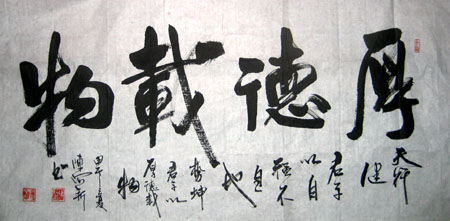 厚德載物
天行
健
君子
以自
强不
息
地
勢坤
君子以
厚德載
物
甲午夏
书